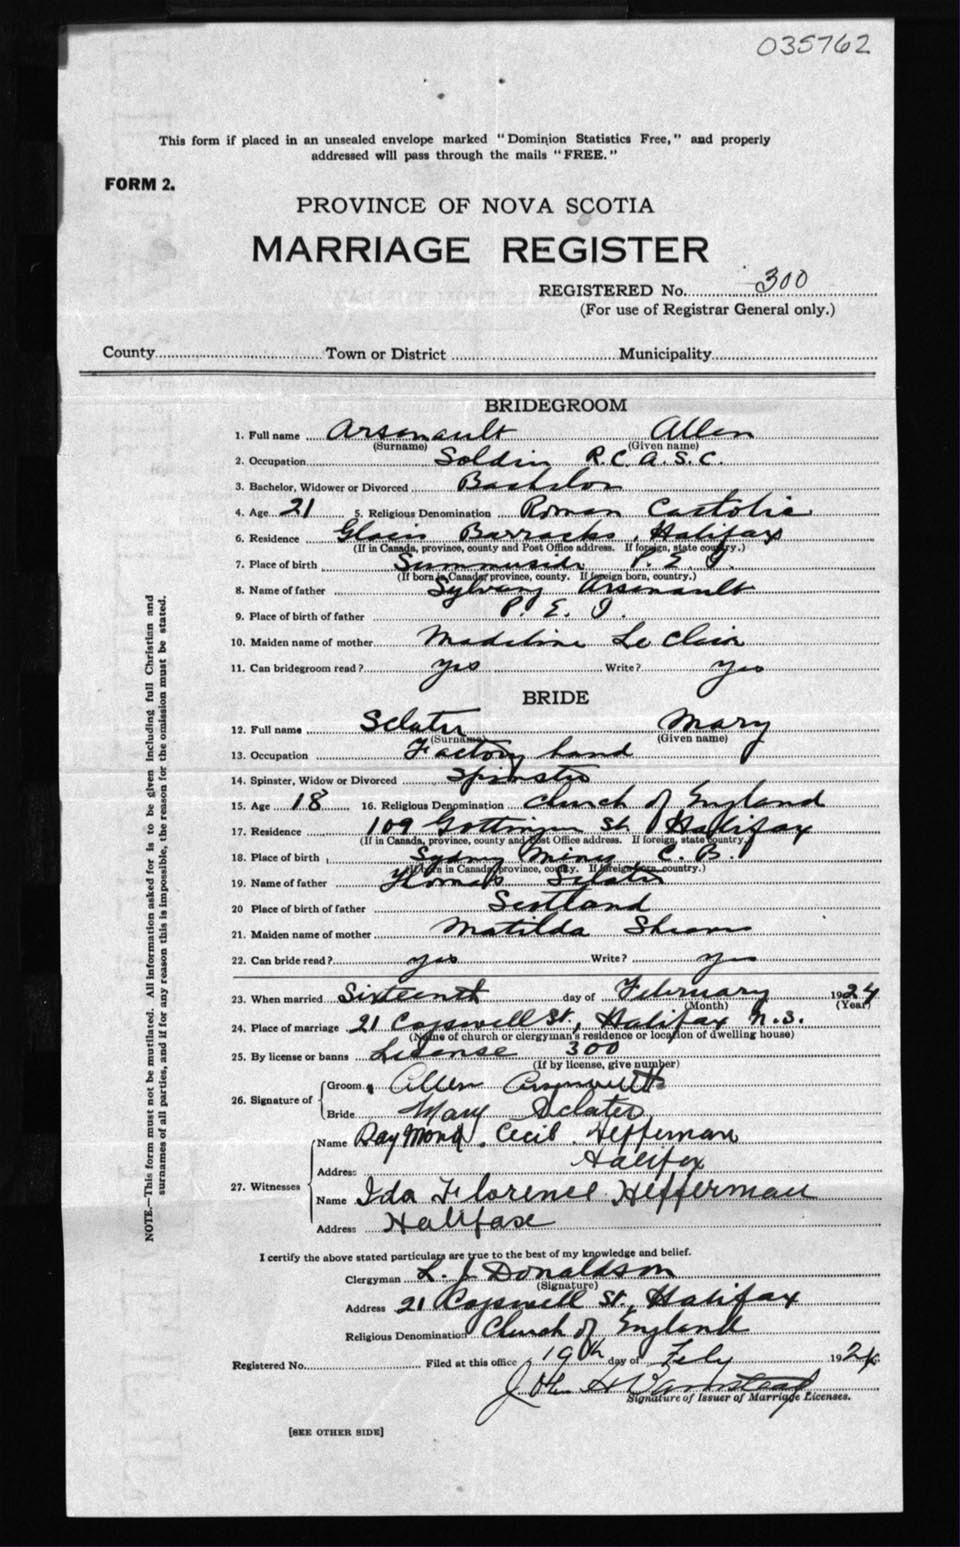 035762
This form if placed in an unsealed envelope marked "Dominion Statistics Free," and properly
addressed will pass through the mails "FREE."
FORM 2.
PROVINCE OF NOVA SCOTIA
MARRIAGE REGISTER
REGISTERED No. 300
(For use of Registrar General only.)
County Town or District Municipality
BRIDEGROOM
1. Full name Arsenault Allen
(Surname) (Given name)
2. Occupation Soldier R.C.A.S.C.
3. Bachelor, Widower or Divorced Bachelor
4. Age 21 5. Religious Denomination Roman Catholic
6. Residence Glacis Barracks, Halifax
(If in Canada, province, county and Post Office address. If foreign, state country.)
7. Place of birth Summerside P.E.I.
(If born in Canada, province, county. If foreign born, country.)
8. Name of father Arsenault
9. Place of birth of father P.E.I.
10. Maiden name of mother Madeline Le Clair
11. Can bridegroom read? yes Write? yes
BRIDE
12. Full name Sclater Mary
(Surname) (Given name)
13. Occupation Factory hand
14. Spinster, Widow or Divorced Spinster
15. Age 18 16. Religious Denomination Church of England
17. Residence 109 Gottingen St. Halifax
(If in Canada, province, county and Post Office address. If foreign, state country.)
18. Place of birth Sydney Mines C.B.
(If born in Canada, province, county. If foreign born, country.)
19. Name of father Thomas Sclater
20 Place of birth of father Scotland
21. Maiden name of mother Matilda
22. Can bride read? yes Write? yes
23. When married Sixteenth day of February 1924
(Month) (Year)
24. Place of marriage 21 Cogswell St., Halifax N.S.
(Name of church or clergyman's residence or location of dwelling house)
25. By license or banns License 300
(If by license, give number)
26. Signature of Groom Allen Arsenault
Bride Mary Sclater
27. Witnesses Name Raymond Cecil Heffernan
Address Halifax
Name Ida Florence Heffernan
Address Halifax
I certify the above stated particulars are true to the best of my knowledge and belief.
Clergyman L. J. Donaldson
(Signature)
Address 21 Cogswell St., Halifax
Religious Denomination Church of England
Registered No. Filed at this office 19th day of Feby 1924
Signature of Issuer of Marriage Licenses.
[SEE OTHER SIDE]
NOTE.—This form must not be mutilated. All information asked for is to be given including full Christian and
surnames of all parties, and if for any reason this is impossible, the reason for the omission must be stated.